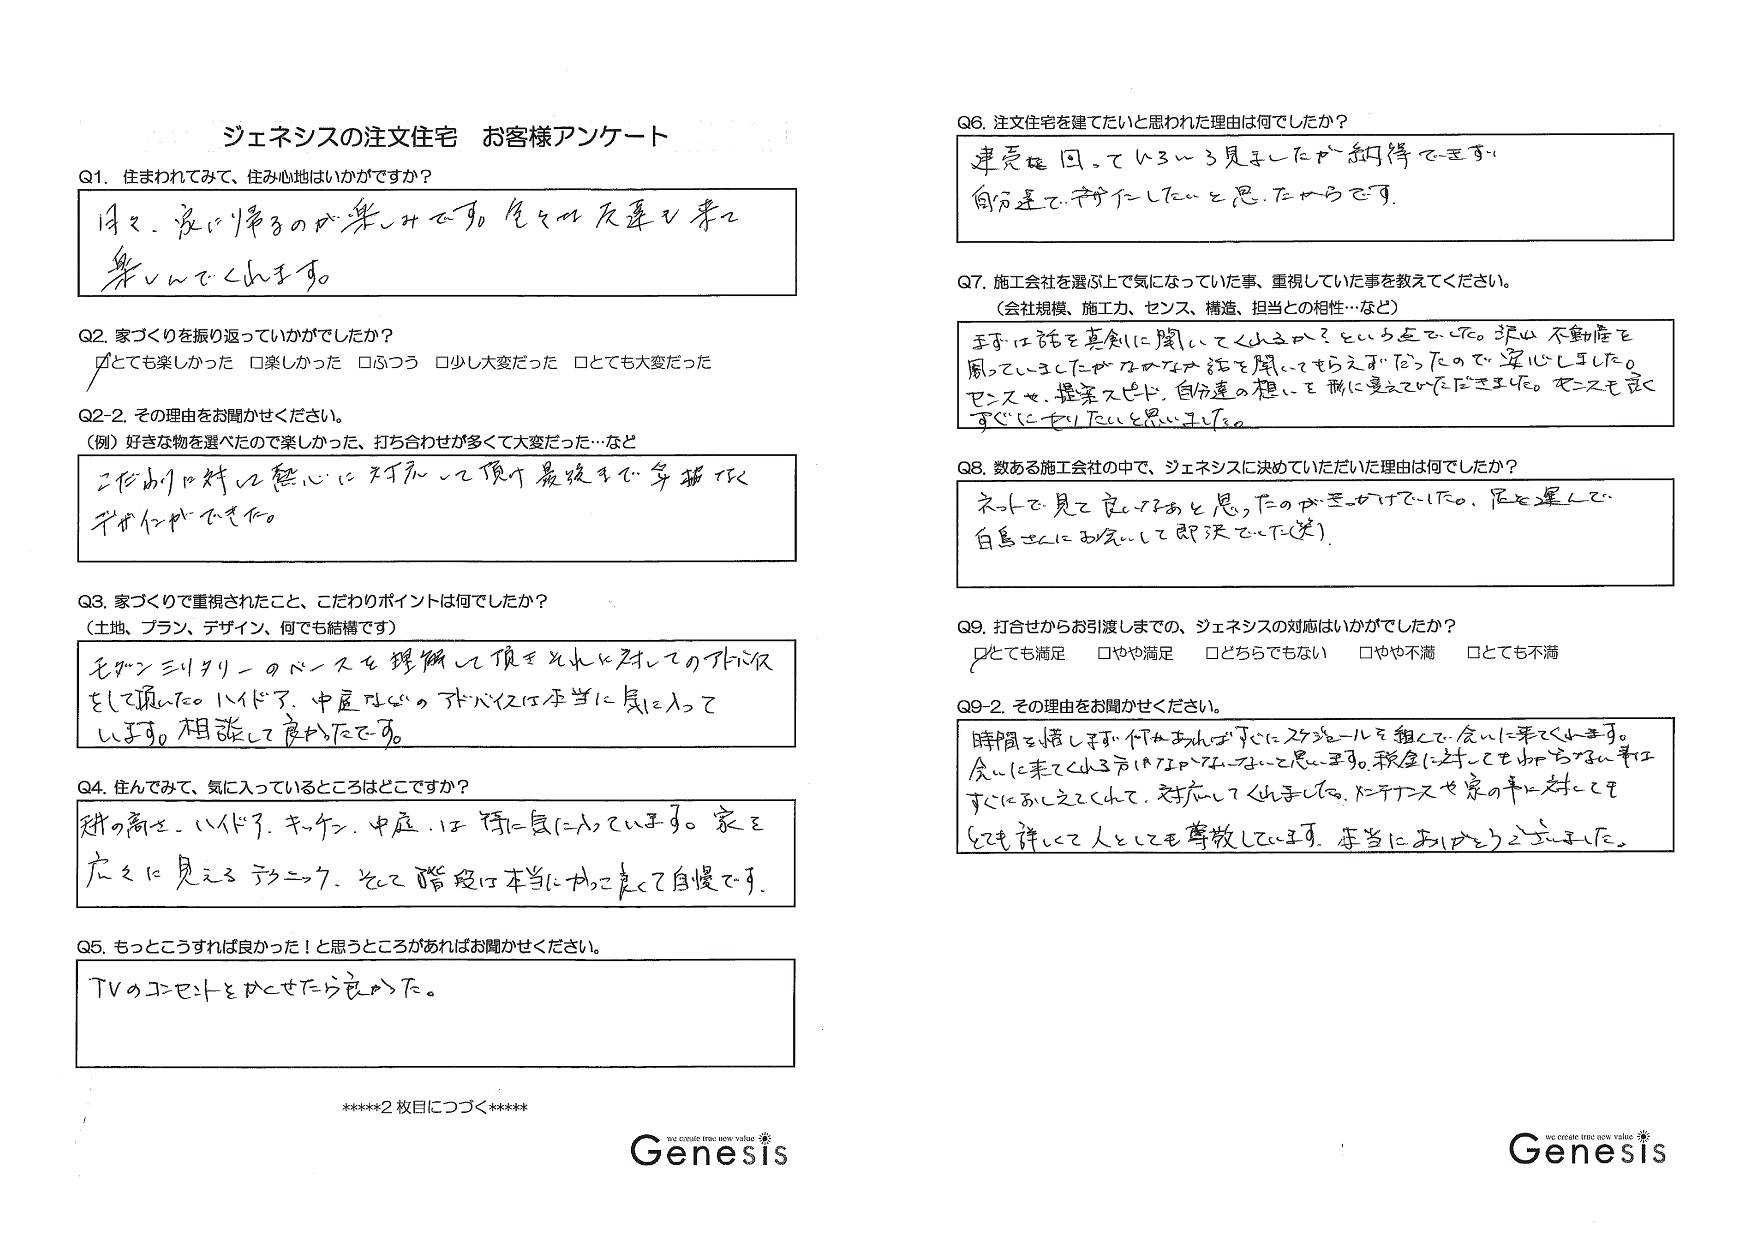 ジェネシスの注文住宅　お客様アンケート
Q1. 住まわれてみて、住み心地はいかがですか？
日々、家に帰るのが楽しみです。 友達も来て
楽しんでくれます。
Q2. 家づくりを振り返っていかがでしたか？
☑とても楽しかった　□楽しかった　□ふつう　□少し大変だった　□とても大変だった
Q2-2. その理由をお聞かせください。
（例）好きな物を選べたので楽しかった、打ち合わせが多くて大変だった…など
こだわりに対して熱心に対応して頂け最後まで なく
デザインができた。
Q3. 家づくりで重視されたこと、こだわりポイントは何でしたか？
（土地、プラン、デザイン、何でも結構です）
モダンミリタリーのベースを理解して頂きそれに対してのアドバイス
をして頂いた。ハイドア、中庭などのアドバイスは本当に気に入って
います。相談して良かったです。
Q4. 住んでみて、気に入っているところはどこですか？
の高さ、ハイドア、キッチン、中庭、は特に気に入っています。家を
広々に見えるテクニック、そして階段は本当にかっこ良くて自慢です.
Q5. もっとこうすれば良かった！と思うところがあればお聞かせください。
TVのコンセントをかくせたら良かった。
*****2 枚目につづく*****
we create true new value
Genesis
Q6. 注文住宅を建てたいと思われた理由は何でしたか？
建売を回っていろいろ見ましたが納得できず、
自分達でデザインしたいと思ったからです.
Q7. 施工会社を選ぶ上で気になっていた事、重視していた事を教えてください。
（会社規模、施工力、センス、構造、担当との相性…など）
まずは話を真剣に聞いてくれるか？という点でした。沢山 不動産を
周っていましたがなかなか話を聞いてもらえずだったので安心しました。
センスや、提案スピード、自分達の想いを形に変えていただきました。センスも良く
すぐにやりたいと思いました。
Q8. 数ある施工会社の中で、ジェネシスに決めていただいた理由は何でしたか？
ネットで見て良いなあと思ったのがきっかけでした。足を運んで
白鳥さんにお会いして即決でした(笑).
Q9. 打合せからお引渡しまでの、ジェネシスの対応はいかがでしたか？
☑とても満足　□やや満足　□どちらでもない　□やや不満　□とても不満
Q9-2. その理由をお聞かせください。
時間を惜しまず何かあればすぐにスケジュールを組んで会いに来てくれます。
会いに来てくれる方はなかなかいないと思います。税金に対してもわからない事は
すぐにおしえてくれて、対応してくれました。メンテナンスや家の事に対しても
とても詳しくて人としても尊敬しています. 本当にありがとうございました。
we create true new value
Genesis